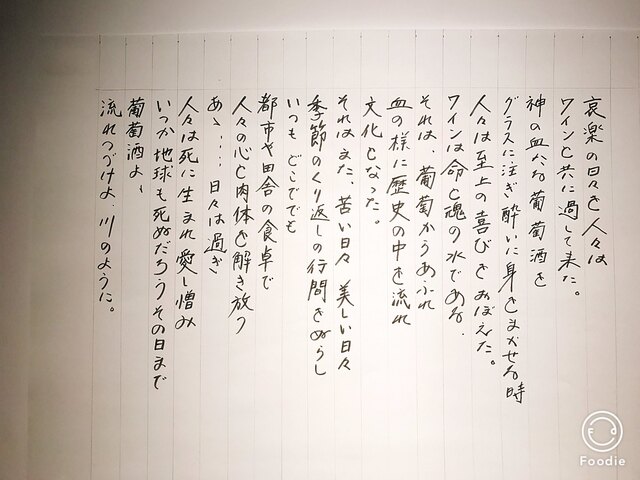 哀楽の日々を人々は
ワインと共に過して来た。
神の血なる葡萄酒を
グラスに注ぎ酔いに身をまかせる時
人々は至上の喜びをおぼえた。
ワインは命と魂の水である。
それは、葡萄からあふれ
血の様に歴史の中を流れ
文化となった。
それはまた、苦い日々 美しい日々
季節のくり返しの行間をぬらし
いつも どこででも
都市や田舎の食卓で
人々の心と肉体を解き放つ
あゝ…、日々は過ぎ
人々は死に生まれ愛し憎み
いつか地球も死ぬだろうその日まで
葡萄酒よ、
流れつづけよ、川のように。
Foodie